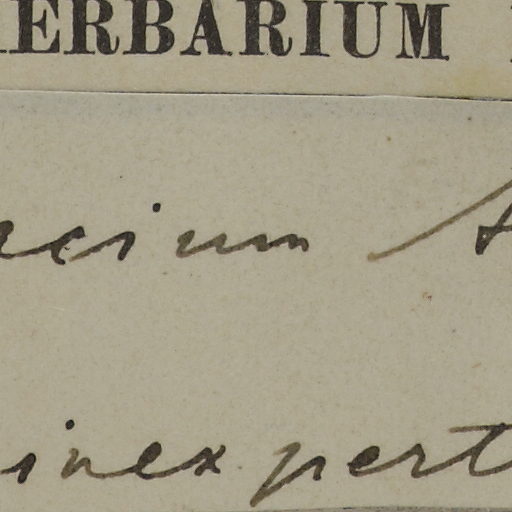 HERBARIUM
acium A
inexpert